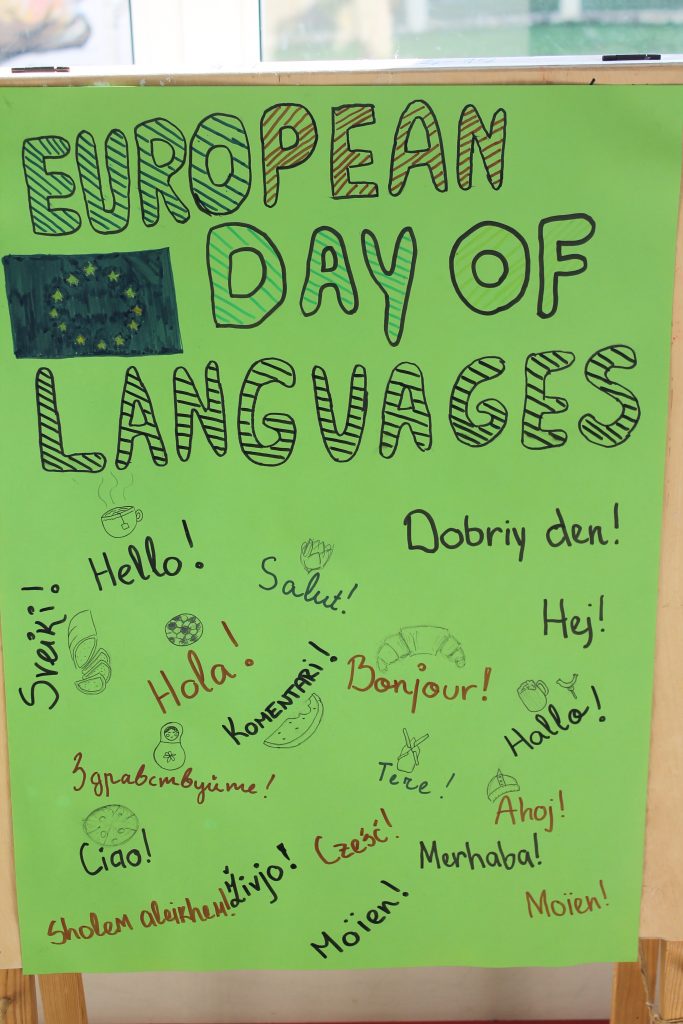 EUROPEAN
DAY OF
LANGUAGES
Hello!
Salut!
Dobriy den!
Sveiki!
Hola!
Komentari!
Bonjour!
Hej!
Hallo!
Здравствуйте!
Tere!
Ahoj!
Ciao!
Živjo!
Cześć!
Merhaba!
Sholem aleikhem!
Moïen!
Moïen!